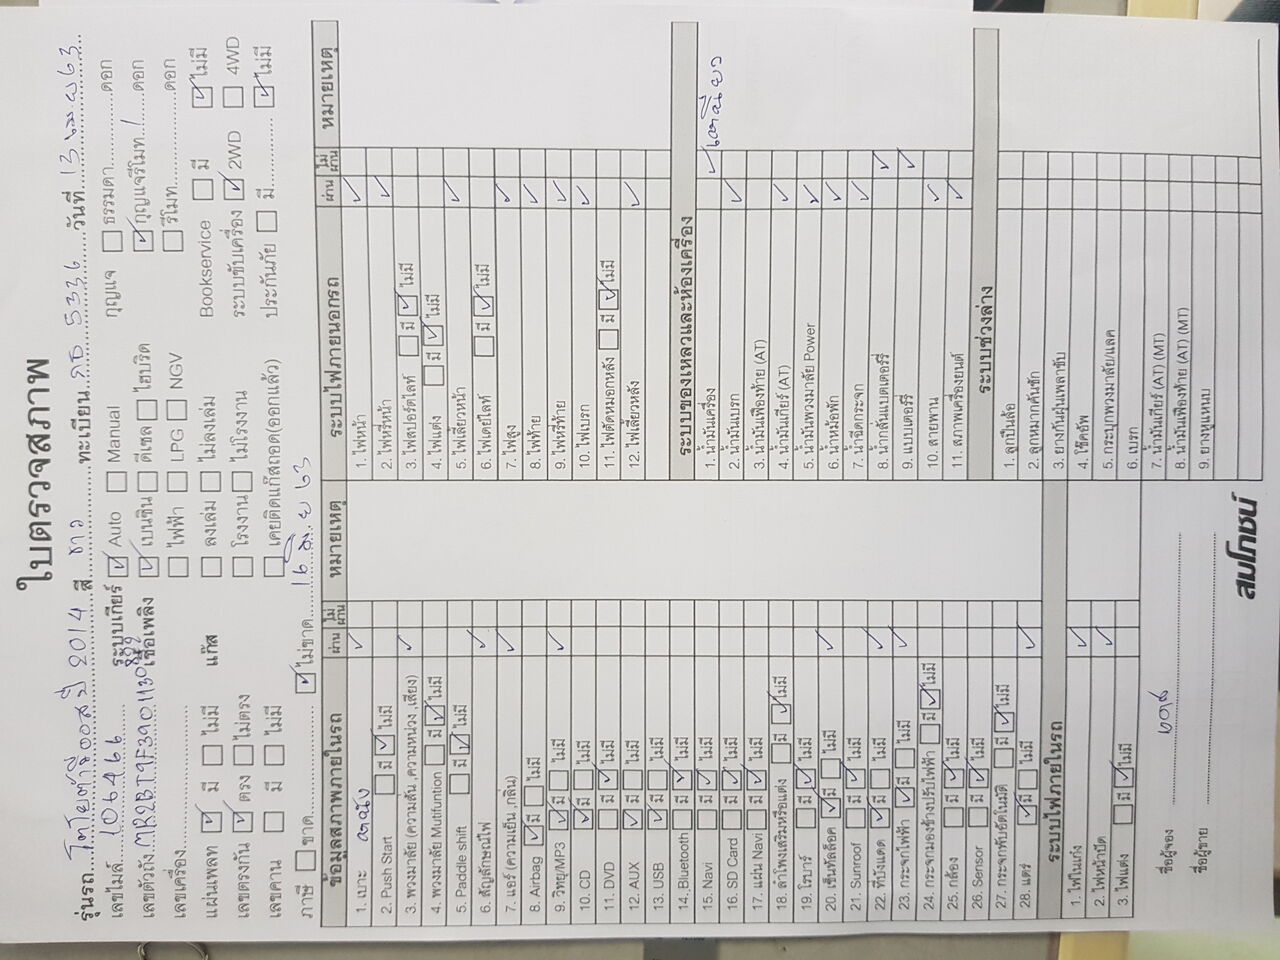 ใบตรวจสภาพ
รุ่นรถ โตโยต้าวีออส ปี 2014 สี ขาว ทะเบียน 5336 วันที่ 13 เม.ย 63
เลขไมล์ 106466 ระบบเกียร์ ☑ Auto ☐ Manual กุญแจ ☐ ธรรมดา ดอก
เลขตัวถัง เชื้อเพลิง ☑ เบนซิน ☐ ดีเซล ☐ ไฮบริด ☑ กุญแจรีโมท 1 ดอก
เลขเครื่อง ☐ ไฟฟ้า ☐ LPG ☐ NGV ☐ รีโมท ดอก
แผ่นเพลท ☑ มี ☐ ไม่มี แก๊ส ☐ ลงเล่ม ☐ ไม่ลงเล่ม Bookservice ☐ มี ☑ ไม่มี
เลขตรงกัน ☑ ตรง ☐ ไม่ตรง ☐ โรงงาน ☐ ไม่โรงงาน ระบบขับเครื่อง ☑ 2WD ☐ 4WD
เลขคาน ☐ มี ☐ ไม่มี ☐ เคยติดแก๊สถอด(ออกแล้ว) ประกันภัย ☐ มี ☑ ไม่มี
ภาษี ☐ ขาด ☑ ไม่ขาด
ข้อมูลสภาพภายในรถ ผ่าน ไม่ผ่าน หมายเหตุ
1. เบาะ หนัง ✓
2. Push Start ☐ มี ☑ ไม่มี
3. พวงมาลัย (ความสั่น ,ความหน่วง ,เสียง) ✓
4. พวงมาลัย Mutifuntion ☐ มี ☑ ไม่มี
5. Paddle shift ☐ มี ☑ ไม่มี
6. สัญลักษณ์ไฟ ✓
7. แอร์ (ความเย็น ,กลิ่น) ✓
8. Airbag ☑ มี ☐ ไม่มี
9. วิทยุ/MP3 ☑ มี ☐ ไม่มี ✓
10. CD ☑ มี ☐ ไม่มี
11. DVD ☐ มี ☑ ไม่มี
12. AUX ☑ มี ☐ ไม่มี
13. USB ☑ มี ☐ ไม่มี
14. Bluetooth ☐ มี ☑ ไม่มี
15. Navi ☐ มี ☑ ไม่มี
16. SD Card ☐ มี ☑ ไม่มี
17. แผ่น Navi ☐ มี ☑ ไม่มี
18. ลำโพงเสริมหรือแต่ง ☐ มี ☑ ไม่มี
19. โรบาร์ ☐ มี ☑ ไม่มี
20. เซ็นทัลล็อค ☑ มี ☐ ไม่มี ✓
21. Sunroof ☐ มี ☑ ไม่มี
22. ที่บังแดด ☑ มี ☐ ไม่มี ✓
23. กระจกไฟฟ้า ☑ มี ☐ ไม่มี ✓
24. กระจกมองข้างปรับไฟฟ้า ☐ มี ☑ ไม่มี
25. กล้อง ☐ มี ☑ ไม่มี
26. Sensor ☐ มี ☑ ไม่มี
27. กระจกพับอัตโนมัติ ☐ มี ☑ ไม่มี
28. แตร์ ☑ มี ☐ ไม่มี ✓
ระบบไฟภายในรถ
1. ไฟในเก๋ง ✓
2. ไฟหน้าปัด ✓
3. ไฟแต่ง ☐ มี ☑ ไม่มี
ระบบไฟภายนอกรถ ผ่าน ไม่ผ่าน หมายเหตุ
1. ไฟหน้า ✓
2. ไฟหรี่หน้า ✓
3. ไฟสปอร์ตไลท์ ☐ มี ☑ ไม่มี
4. ไฟแต่ง ☐ มี ☑ ไม่มี
5. ไฟเลี้ยวหน้า ✓
6. ไฟเดย์ไลท์ ☐ มี ☑ ไม่มี
7. ไฟสูง ✓
8. ไฟท้าย ✓
9. ไฟหรี่ท้าย ✓
10. ไฟเบรก ✓
11. ไฟตัดหมอกหลัง ☐ มี ☑ ไม่มี
12. ไฟเลี้ยวหลัง ✓
ระบบของเหลวและห้องเครื่อง
1. น้ำมันเครื่อง ✓
2. น้ำมันเบรก ✓
3. น้ำมันเฟืองท้าย (AT)
4. น้ำมันเกียร์ (AT) ✓
5. น้ำมันพวงมาลัย Power ✓
6. น้ำหม้อพัก ✓
7. น้ำฉีดกระจก ✓
8. น้ำกลั่นแบตเตอร์รี่ ✓
9. แบบเตอร์รี่ ✓
10. สายพาน ✓
11. สภาพเครื่องยนต์ ✓
ระบบช่วงล่าง
1. ลูกปืนล้อ
2. ลูกหมากคันชัก
3. ยางกันฝุ่นเพลาขับ
4. โช๊คอัพ
5. กระปุกพวงมาลัย/แลค
6. เบรก
7. น้ำมันเกียร์ (AT) (MT)
8. น้ำมันเฟืองท้าย (AT) (MT)
9. ยางหูแหนบ
ชื่อผู้จอง
ชื่อผู้ขาย
สมโภชน์